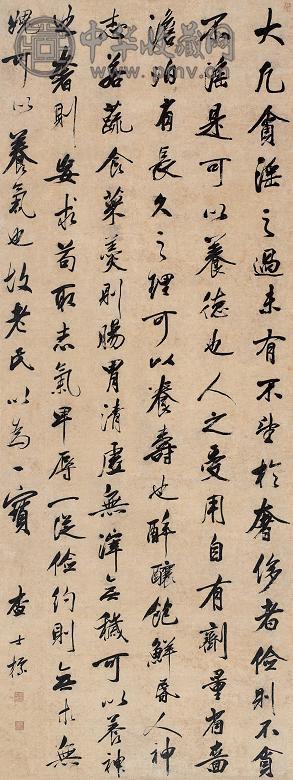 中华收藏网
大凡貪淫之過未有不生於奢侈者儉則不貪
不淫是可以養德也人之受用自有劑量省嗇
澹泊有長久之理可以養壽也醉醲飽鮮昏人神
志若蔬食菜羹則腸胃清虛無滓無穢可以養神
也奢則妄求苟取志氣卑辱一從儉約則無求無
愧可以養氣也故老氏以為一寶 查士標